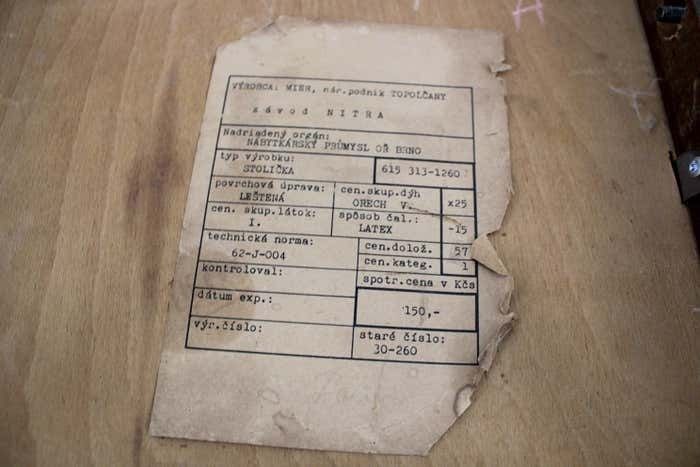 VÝROBCA: MIER, nár.podnik TOPOĽČANY
závod NITRA
Nadriadený orgán:
NÁBYTKÁRSKÝ PRŮMYSL OŘ BRNO
typ výrobku:
STOLIČKA
615 313-1260
povrchová úprava:
LEŠTENÁ
cen.skup.dýh
ORECH V.
x25
cen. skup.látok:
I.
spôsob čal.:
LATEX
-15
technická norma:
62-J-004
cen.dolož.
57
cen.kateg.
1
kontroloval:
spotr.cena v Kčs
dátum exp.:
150,-
výr.číslo:
staré číslo:
30-260